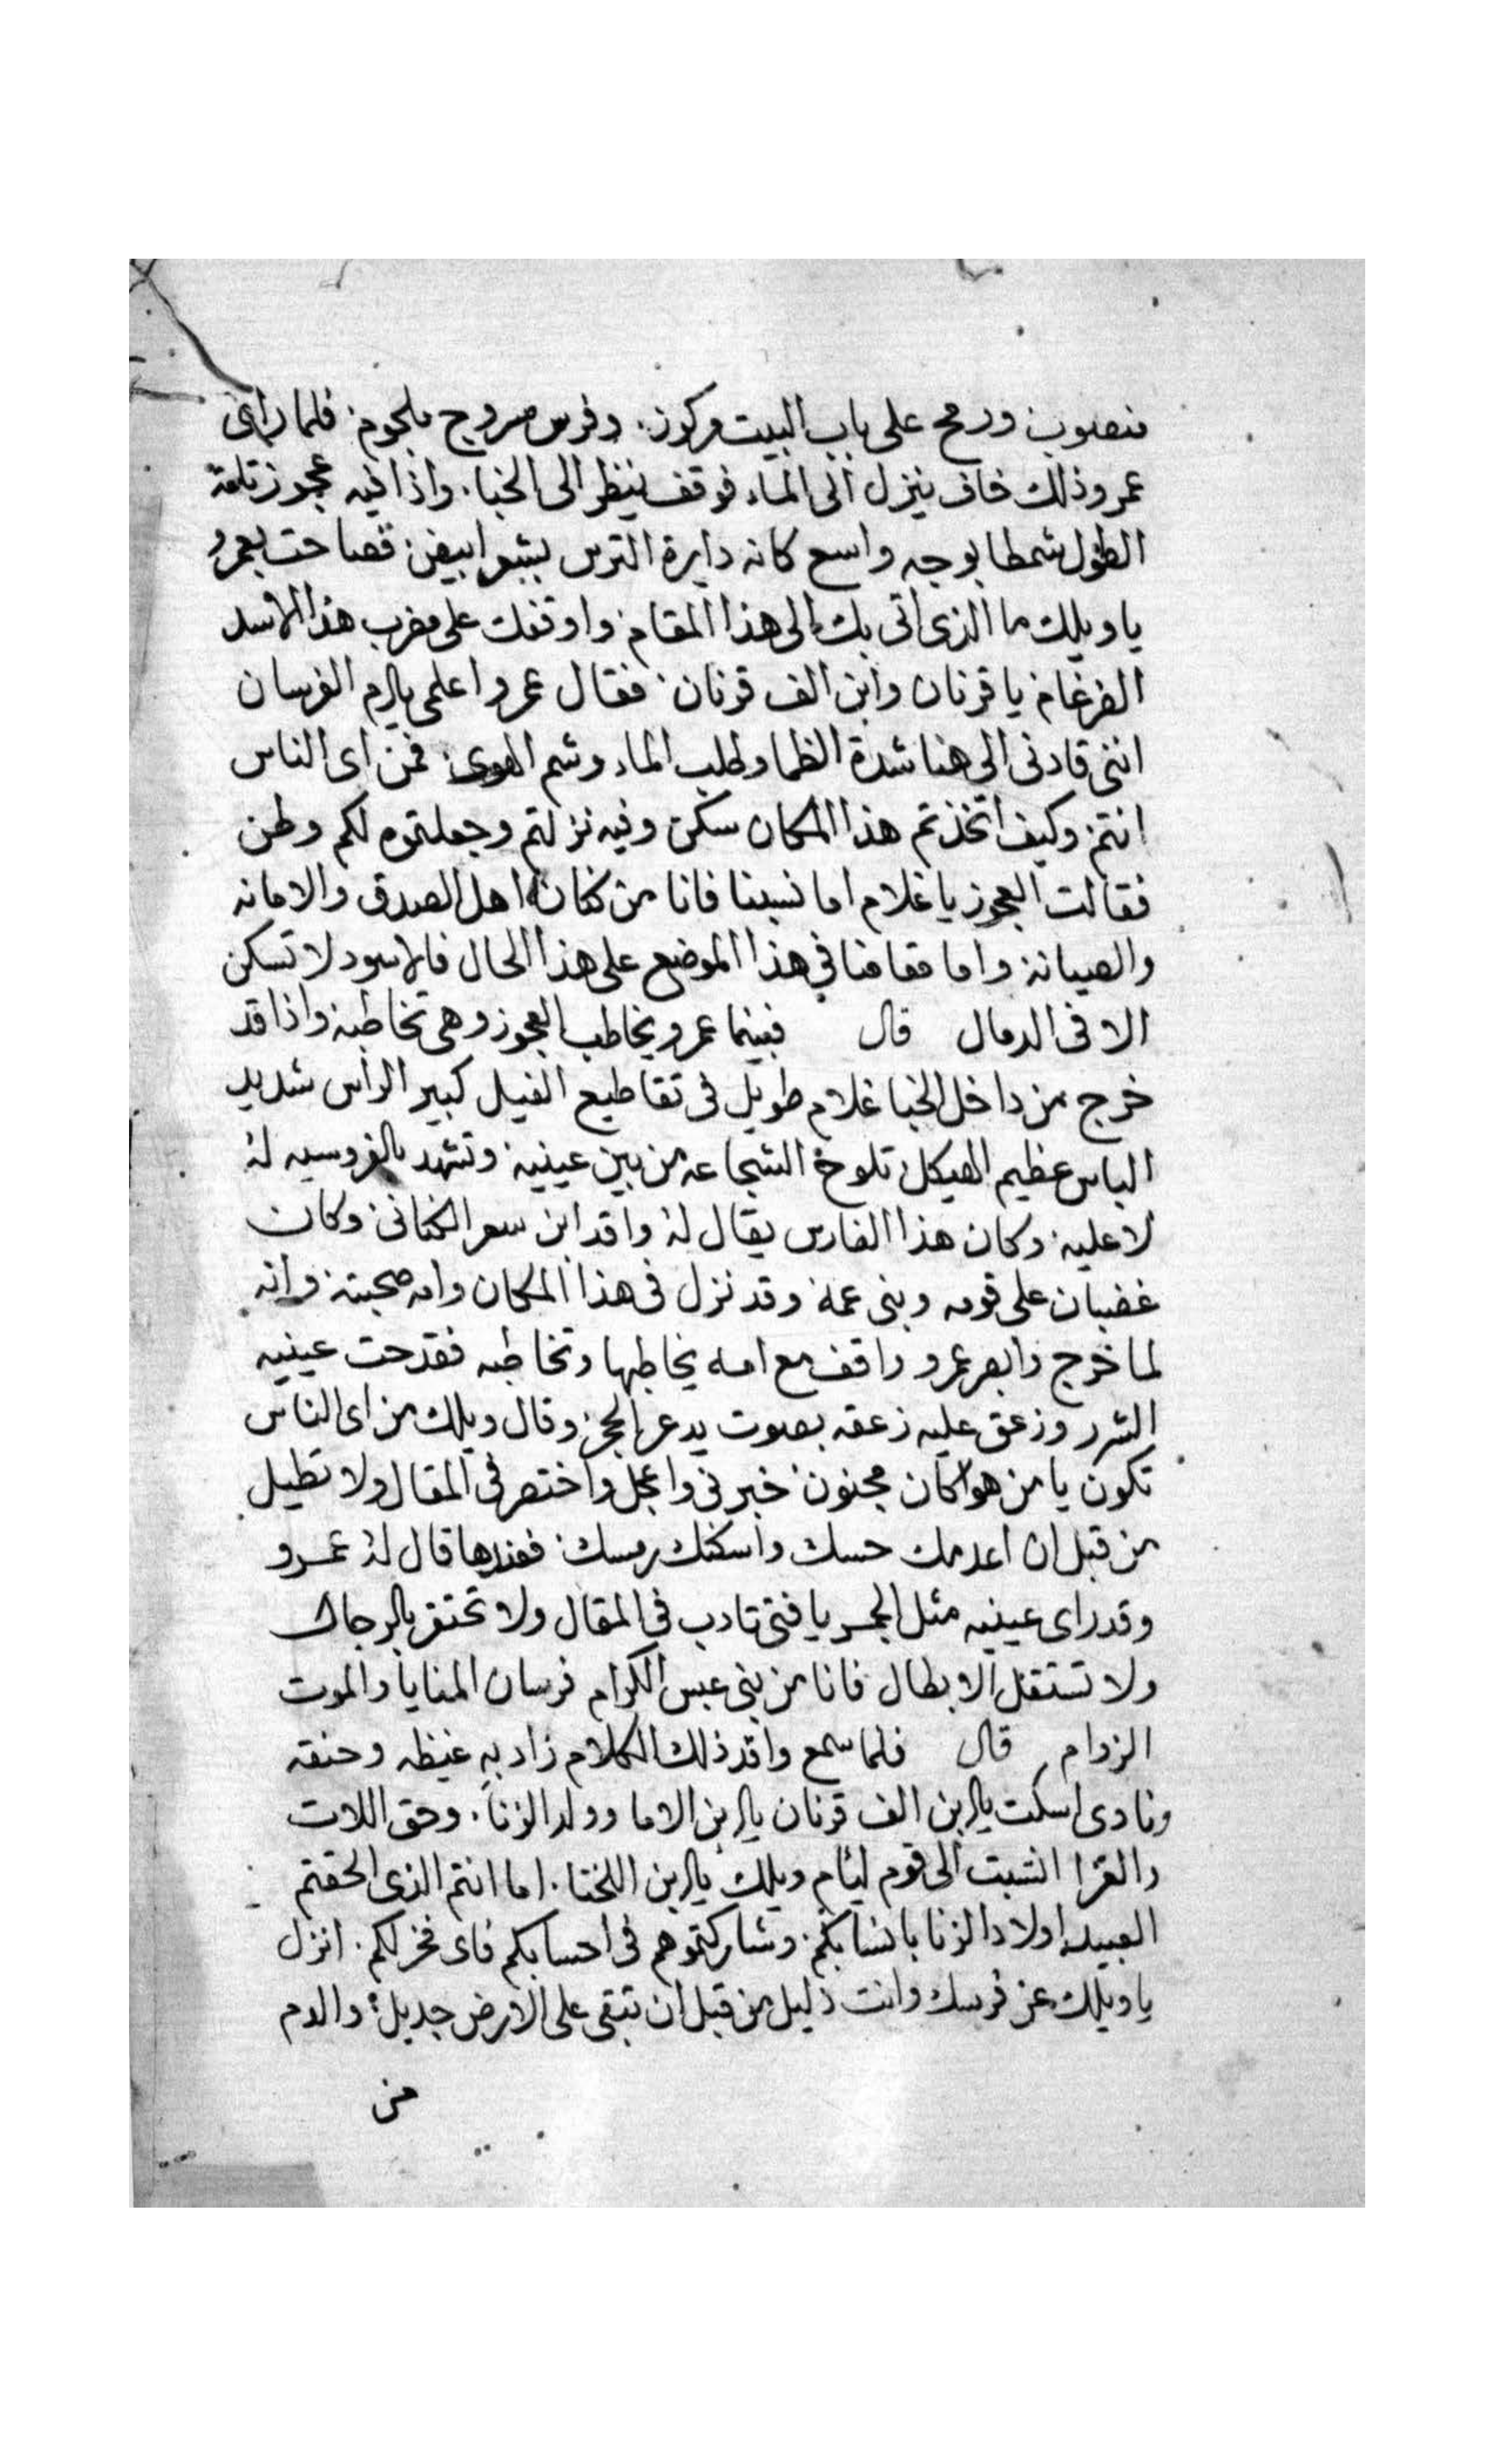 منصوب ورمح على باب البيت مركوز. وفرس مسروج ملجوم فلما رای
عمرو ذلك خاف ينزل الى الماء فوقف ينظر الى الخبا. واذا فيه عجوز تلعة
الطول شمطا بوجه واسع كانه دايرة الترس بشعر ابيض فصاحت بعمرو
يا ويلك ما الذى اتى بك الى هذا المقام واوقفك على مضرب هذا الاسد
الضرغام يا قرنان وابن الف قرنان فقال عمرو اعلمى يا ام الفرسان
اننى قادنى الى هنا شدة الظما وطلب الماء وشم الهوى فمن اى الناس
انتم وكيف اتخذتم هذا المكان سكن وفيه نزلتم وجعلتموه لكم وطن
فقالت العجوز يا غلام اما نسبنا فانا من كنانه اهل الصدق والامانه
والصيانه واما مقامنا في هذا الموضع على هذا الحال فالاسود لا تسكن
الا فى الدحال قال فبينما عمرو يخاطب العجوز وهى تخاطبه واذا قد
خرج من داخل الخبا غلام طويل فى تقاطيع الفيل كبير الراس شديد
الباس عظيم الهيكل تلوح الشجاعه من بين عينيه وتشهد بالفروسيه له
لا عليه وكان هذا الفارس يقال له واقد ابن سعر الكنانى وكان
غضبان على قومه وبنى عمه وقد نزل فى هذا المكان وامه صحبته وانه
لما خرج وابصر عمرو واقف مع امه يخاطبها وتخاطبه فقدحت عينيه
الشرر وزعق عليه زعقه بصوت يدعر الحجر وقال ويلك من اى الناس
تكون يا من هو اكان مجنون خبرنى واعجل واختصر فى المقال ولا تطيل
من قبل ان اعدمك حسك واسكنك رمسك فعندها قال له عمرو
وقد راى عينيه مثل الجمر يا فتى تادب فى المقال ولا تحتقر بالرجال
ولا تستقل الابطال فانا من بنى عبس الكرام فرسان المنايا والموت
الزوام قال فلما سمع واقد ذلك الكلام زاد به غيظه وحنقه
ونادى اسكت يا ابن الف قرنان يا ابن الاما وولد الزنا. وحق اللات
والعزا انتسبت الى قوم ليام ويلك يا ابن اللخنا. اما انتم الذى الحقتم
العبيد اولاد الزنا بانسابكم. وشاركتموهم فى احسابكم فاى فخر لكم. انزل
يا ويلك عن فرسك وانت ذليل من قبل ان تبقى على الارض جديل والدم
من